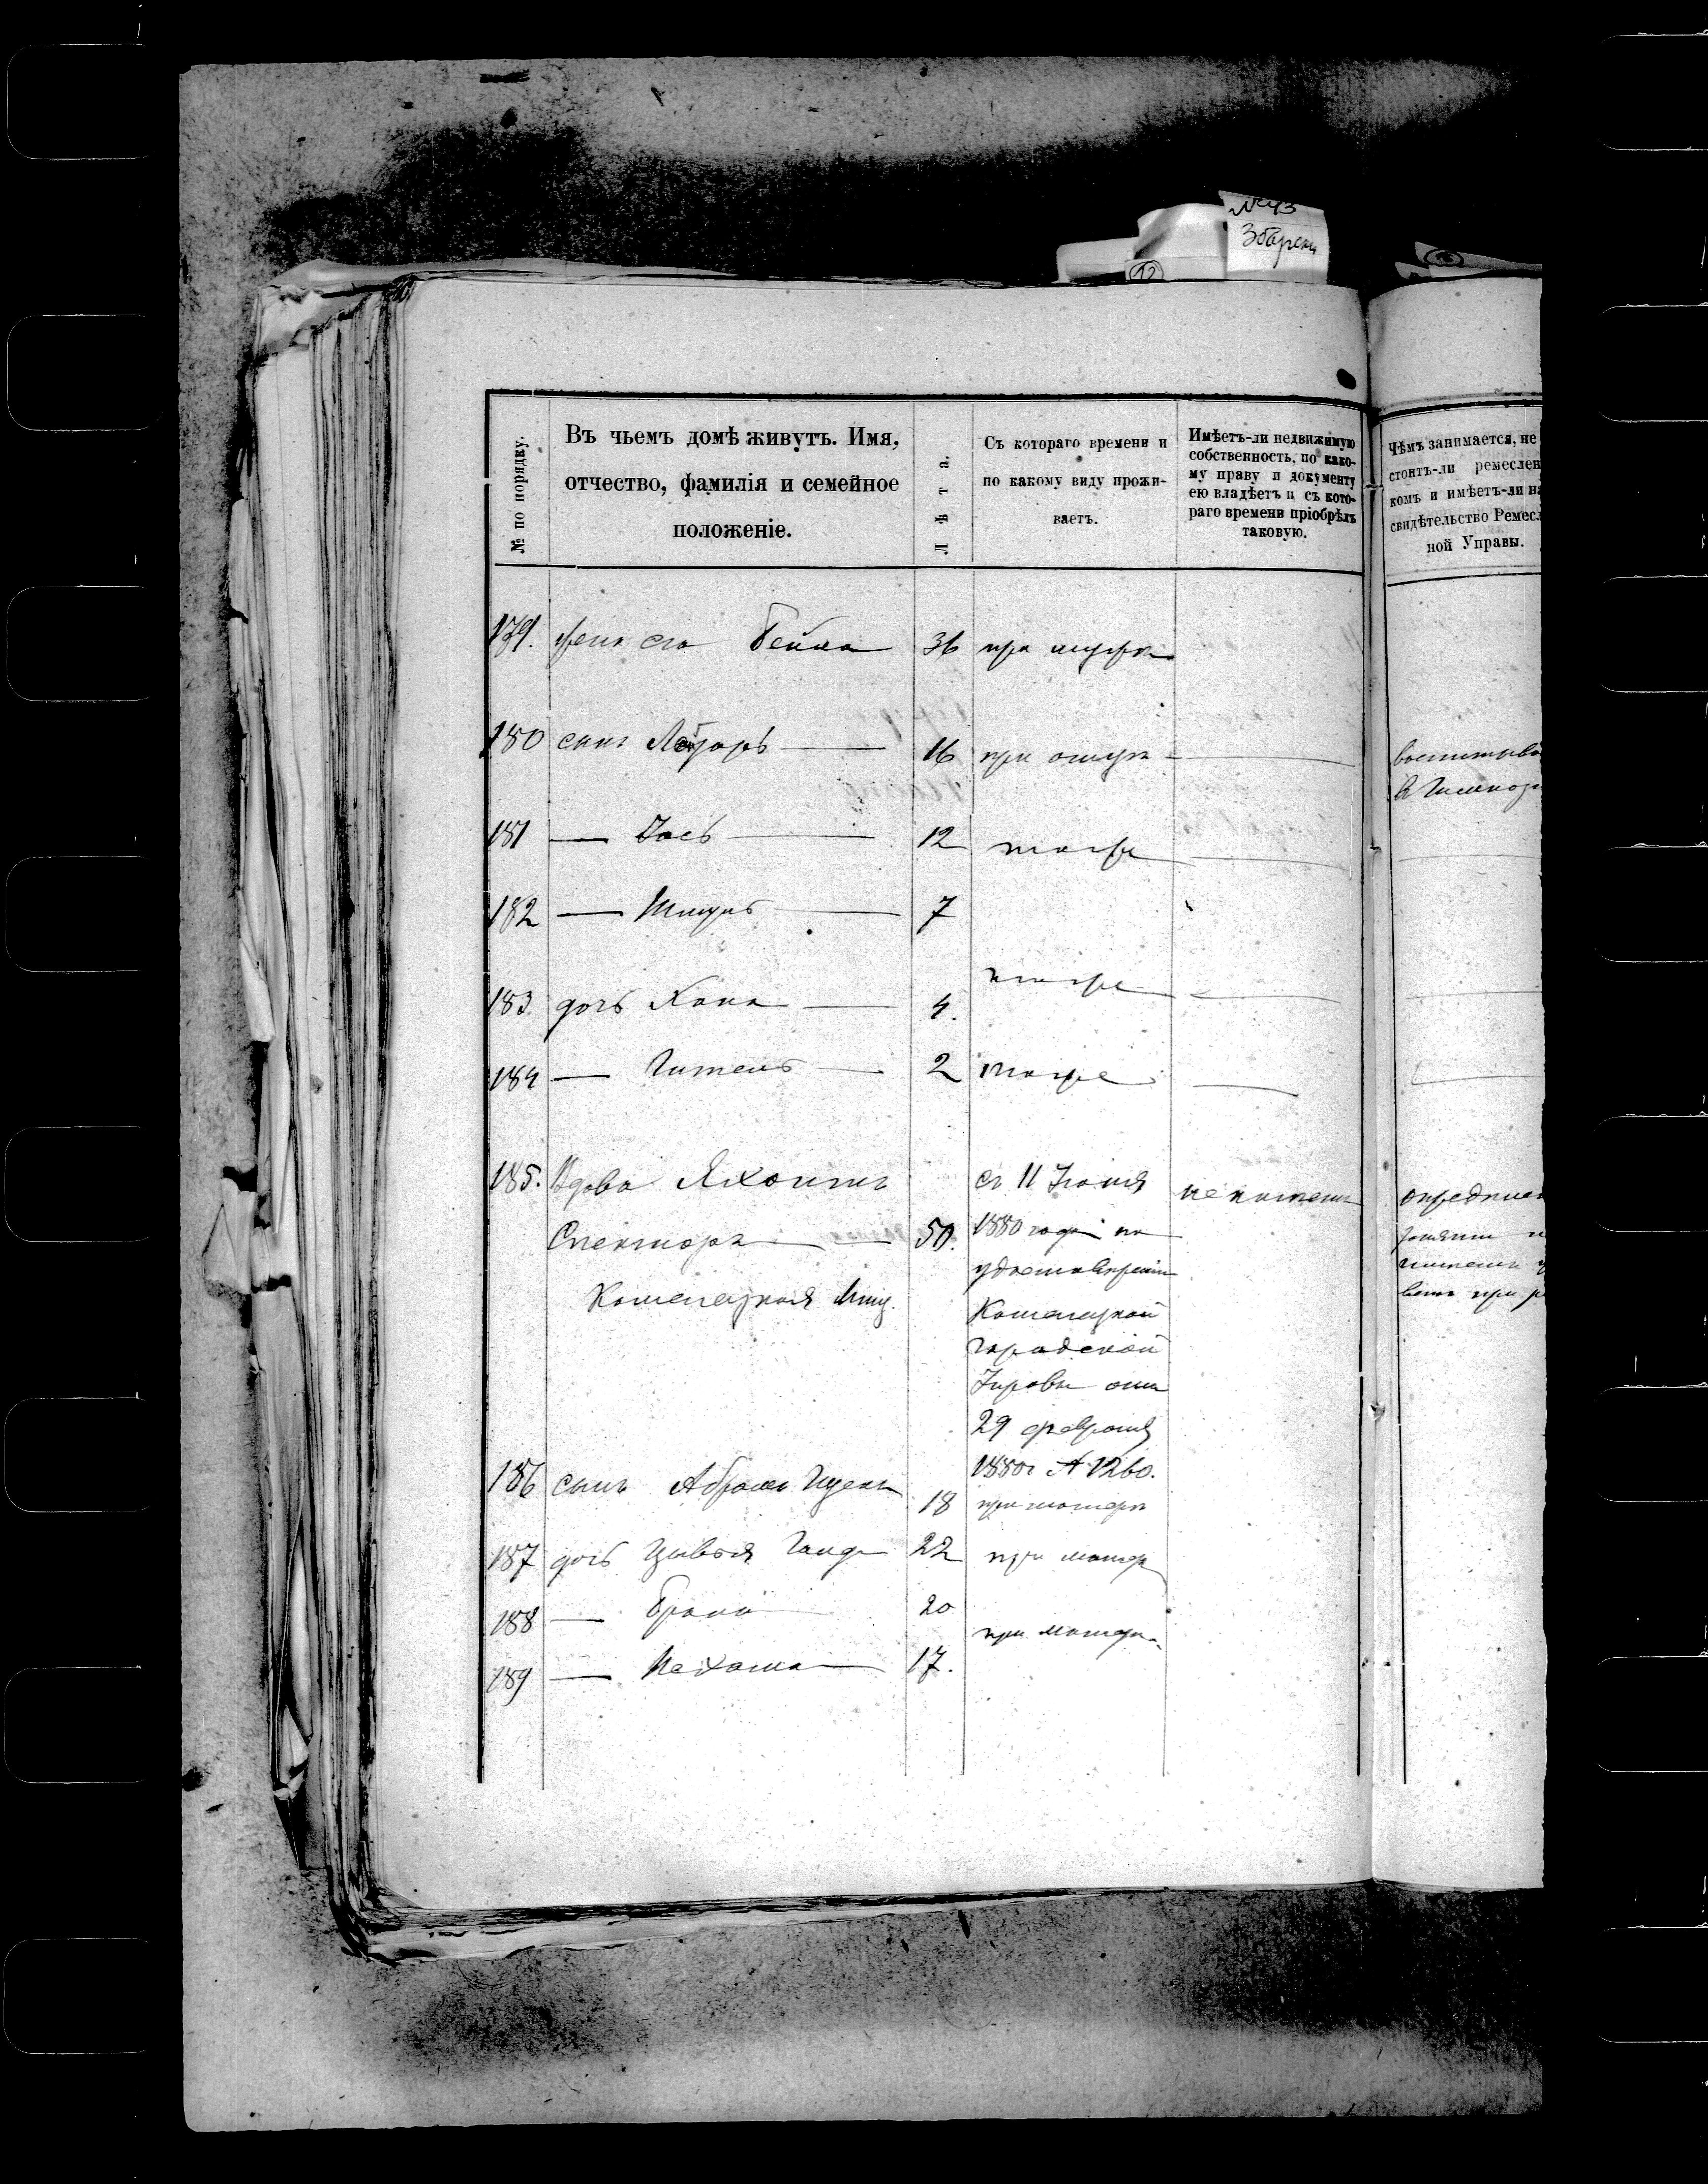 №43
Збарски
12
№ по порядку.
Въ чьемъ домѣ живутъ. Имя,
отчество, фамилія и семейное
положеніе.
Лѣта.
Съ котораго времени и
по какому виду прожи-
ваетъ.
Имѣетъ-ли недвижимую
собственность, по како-
му праву и документу
ею владѣетъ и съ кото-
раго времени пріобрѣлъ
таковую.
Чѣмъ занимается, не
стоитъ-ли ремеслен
комъ и имѣетъ-ли на
свидѣтельство Ремесл
ной Управы.
179. жена его Бейла 36 при мужѣ
180 сынъ Лазарь 16 при отцѣ
181 12 тоже
182 7
183 дочь Хана 4. тоже
184 Гитель 2 тоже
185. Вдова съ 11 Іюня не имѣетъ
Спектора 50. 1880 года по
удостовѣренію
Мѣщ.
городской
Управы отъ
29 февраля
1880г № 1260.
186 сынъ Абрамъ Ицекъ 18 при матери
187 дочь Цывья 22 при матер
188 20 при матери
189 Нехама 17.